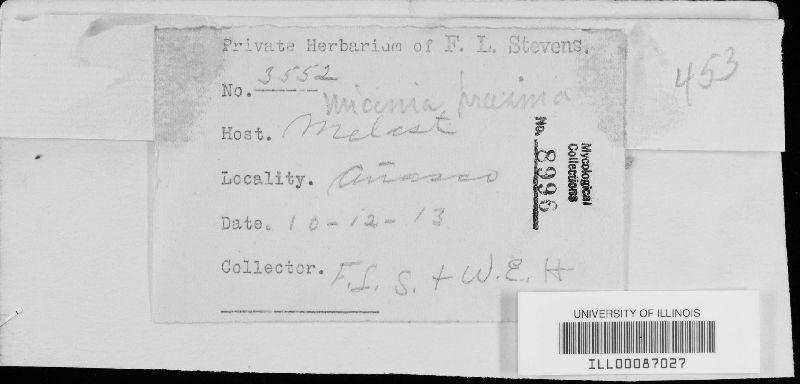 Private Herbarium of F. L. Stevens.
453
No. 3552
Miconia prasina
Host. Melast
Locality. Añasco
Date. 10-12-13
Collector. F.L.S. + W.E.H
Mycological
Collections
No. 8996
UNIVERSITY OF ILLINOIS
ILL00087027